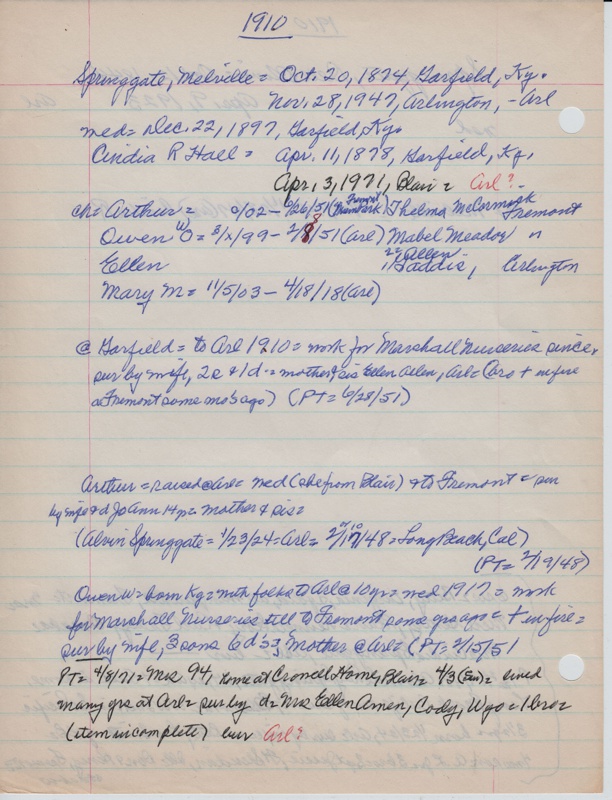 1910
Springgate, Melville = Oct. 20, 1874, Garfield, Ky.
Nov. 28, 1947, Arlington, - Arl
med = Dec. 22, 1897, Garfield, Ky.
Cindia R Hall = Apr. 11, 1878, Garfield, Ky.
Apr. 3, 1971, Blair = Arl?
ch = Arthur = 0/02 - 6/26/51 (Fremont Thelma McCormick Fremont
Owen W = 3/x/99 - 2/8/51 (Arl) Mabel Meador "
Ellen Allen Gaddis, Arlington
Mary M = 11/5/03 - 4/18/18 (Arl)
@ Garfield = to Arl 1910 = work for Marshall Nurseries since,
sur by wife, 2s & 1d = mother & sis Ellen Allen, Arl = (bro + wife
@ Fremont some mo's ago) (PT = 6/28/51)
Arthur = raised @ Arl = med (she from Blair) & to Fremont = sur
by wife & d JoAnn 14yr = mother & sis =
(Alvin Springgate = 1/23/24 = Arl = 2/10/48 = Long Beach, Cal)
(PT = 2/19/48)
Owen W = born Ky = with folks to Arl @ 10yr = med 1917 = work
for Marshall Nurseries till to Fremont some yrs ago = + wife =
sur by wife, 3 sons 6 d's; Mother @ Arl = (PT = 2/15/51
PT = 4/8/71 = Mrs 94, home at Crowell Home, Blair = 4/3 = lived
many yrs at Arl = sur by d = Mrs Ellen Amen, Cody, Wyo = 1 bro =
(item incomplete) bur Arl?